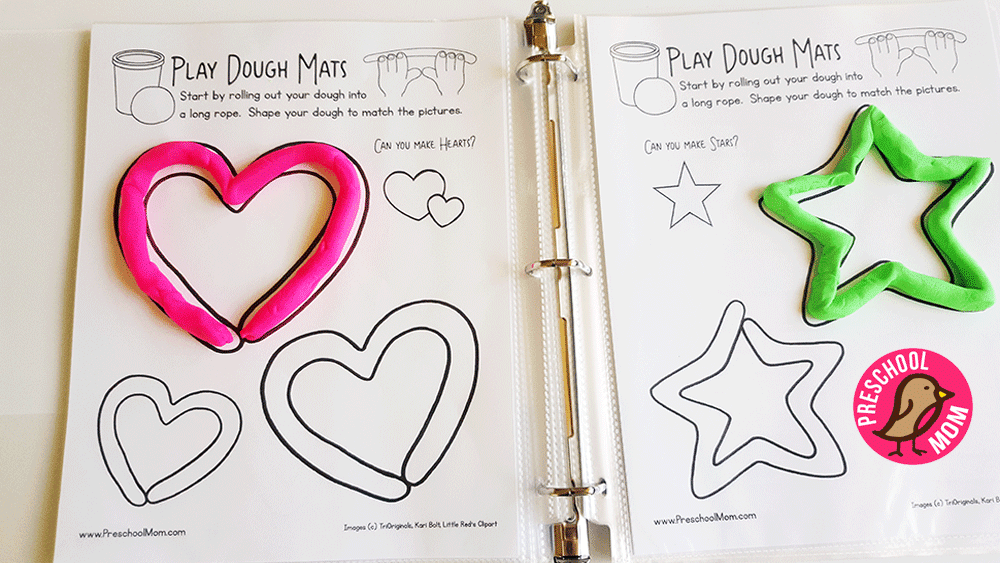 PLAY DOUGH MATS
Start by rolling out your dough into
a long rope. Shape your dough to match the pictures.
CAN YOU MAKE HEARTS?
www.PreschoolMom.com
Images (c) TriOriginals, Kari Bolt, Little Red's Clipart
PLAY DOUGH MATS
Start by rolling out your dough into
a long rope. Shape your dough to match the pictures.
CAN YOU MAKE STARS?
www.PreschoolMom.com
Images (c) TriOriginals, Kari Bo
PRESCHOOL
MOM